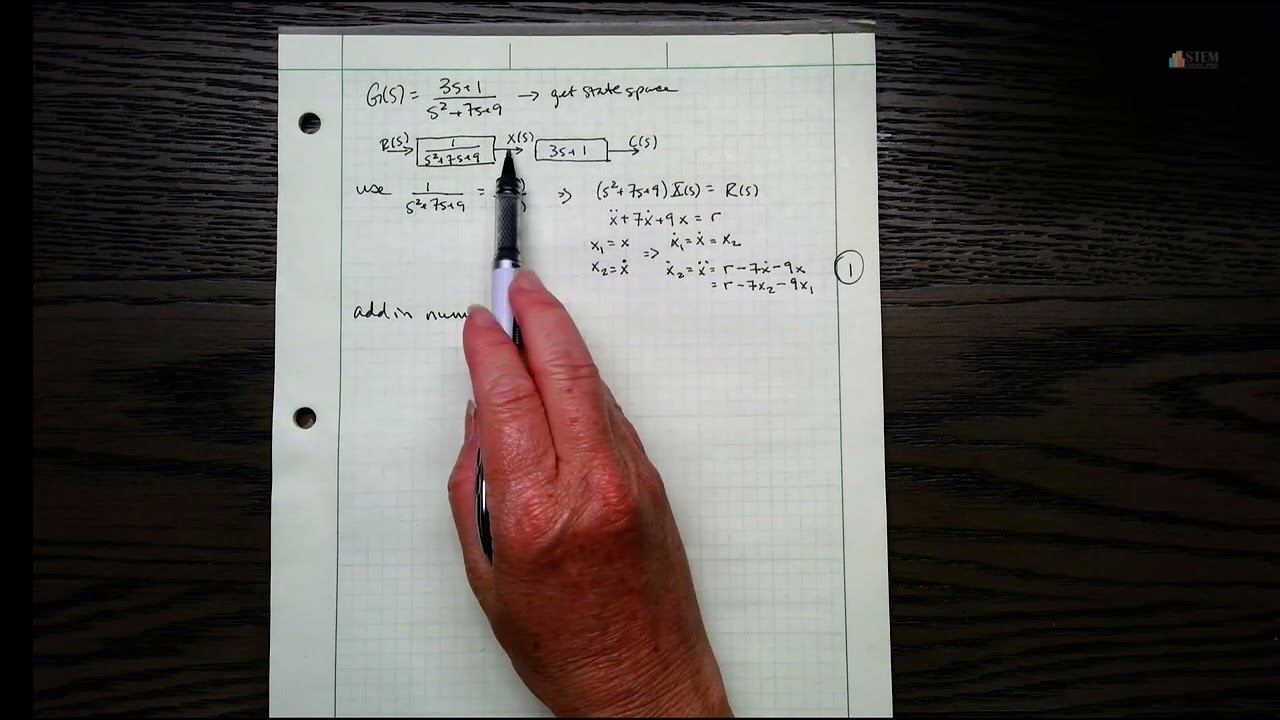 G(s) = 3s+1 / s²+7s+9 → get state space
R(s) → 1 / s²+7s+9 → X(s) → 3s+1 → C(s)
use 1 / s²+7s+9 = ⇒ (s²+7s+9) X(s) = R(s)
ẍ + 7ẋ + 9x = r
x₁ = x ⇒ ẋ₁ = ẋ = x₂
x₂ = ẋ ẋ₂ = ẍ = r - 7ẋ - 9x
= r - 7x₂ - 9x₁
1
add in
STEM